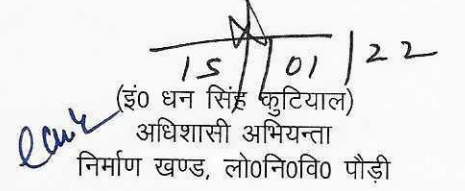 15/01/22
(इं० धन सिंह कुटियाल)
अधिशासी अभियन्ता
निर्माण खण्ड, लो०नि०वि० पौड़ी